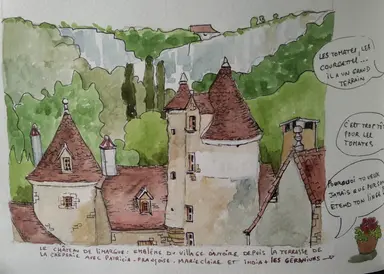 LES TOMATES, LES
COURGETTES...
IL A UN GRAND
TERRAIN
C'EST TROP TÔT
POUR LES
TOMATES
POURQUOI
JAMAIS
ÉTEND TON LINGE ?
LE CHÂTEAU DE LIMARGUE : EMBLÈME DU VILLAGE D'AUTOIRE DEPUIS LA TERRASSE DE
LA CRÊPERIE AVEC PATRICIA - FRANÇOISE, MARIE CLAIRE ET INDIA & LES GÉRANIUMS